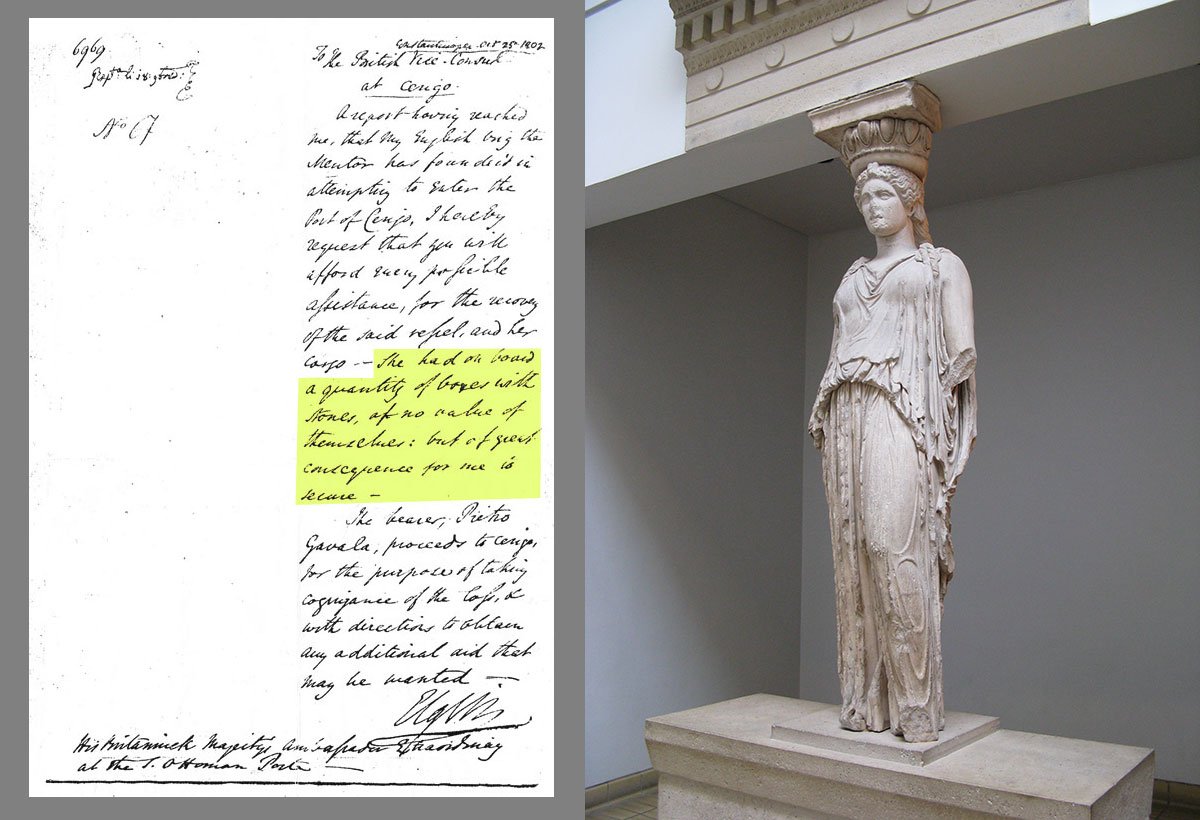 6969
No 67
Constantinople Oct 25th 1802
To the British Vice-Consul
at Cerigo.
A report having reached
me, that my English brig the
Mentor has founder'd in
attempting to enter the
Port of Cerigo, I hereby
request that you will
afford every possible
assistance, for the recovery
of the said vessel, and her
cargo — She had on board
a quantity of boxes with
stones, of no value of
themselves: but of great
consequence for me to
secure —
The bearer, Pietro
Gavala, proceeds to Cerigo,
for the purpose of taking
cognizance of the loss, &
with directions to obtain
any additional aid that
may be wanted —
Elgin
His Britannick Majesty's Ambassador Extraordinary
at the S. Ottoman Porte —